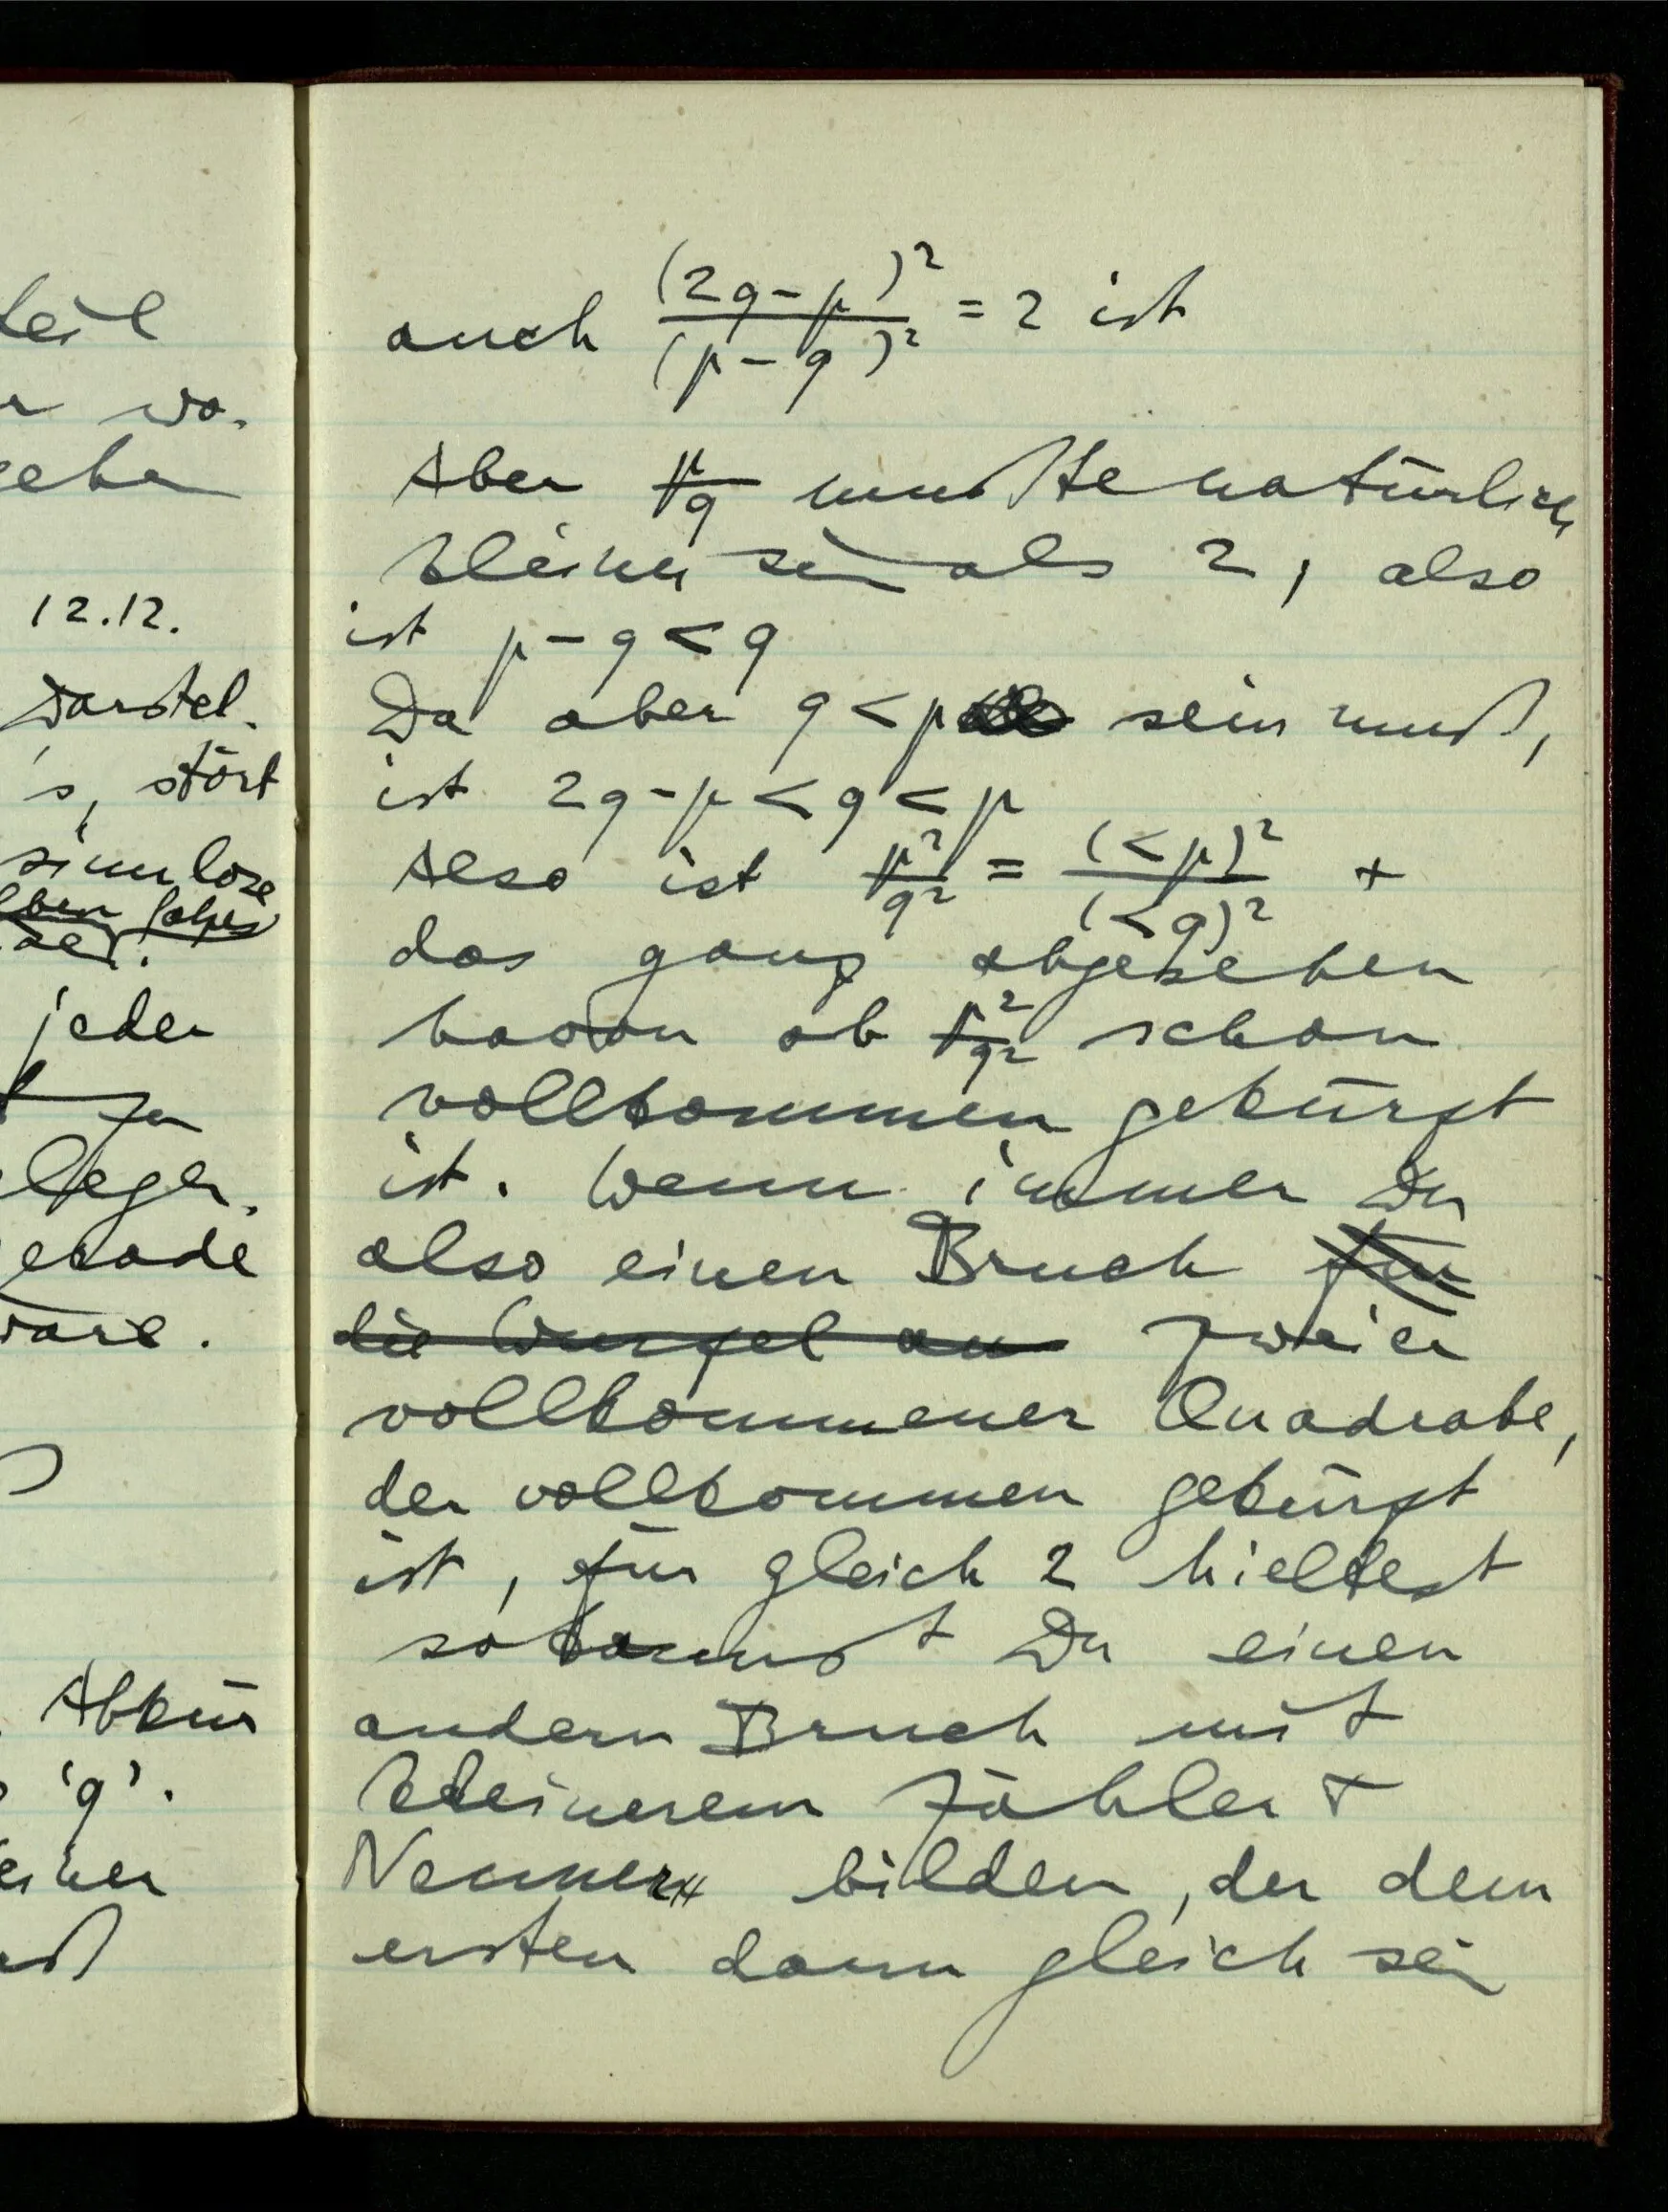 teil
wo.
12.12.
Darstel.
s, stört
sinnlose
jeder
zu
erade
wäre.
Abkür
'q'.
auch (2q-p)²/(p-q)² = 2 ist
Aber p/q musste natürlich
kleiner sein als 2, also
ist p-q<q
Da aber q<p sein muß,
ist 2q-p<q<p
Also ist p²/q² = (<p)²/(<q)² +
das ganz abgesehen
davon ob p²/q² schon
vollkommen gekürzt
ist. Wenn immer Du
also einen Bruch für
die Wurzel aus zweier
vollkommener Quadrate,
der vollkommen gekürzt
ist, für gleich 2 hieltest
so kannst Du einen
andern Bruch mit
kleinerem Zähler +
Nenner bilden, der dem
ersten dann gleich sein